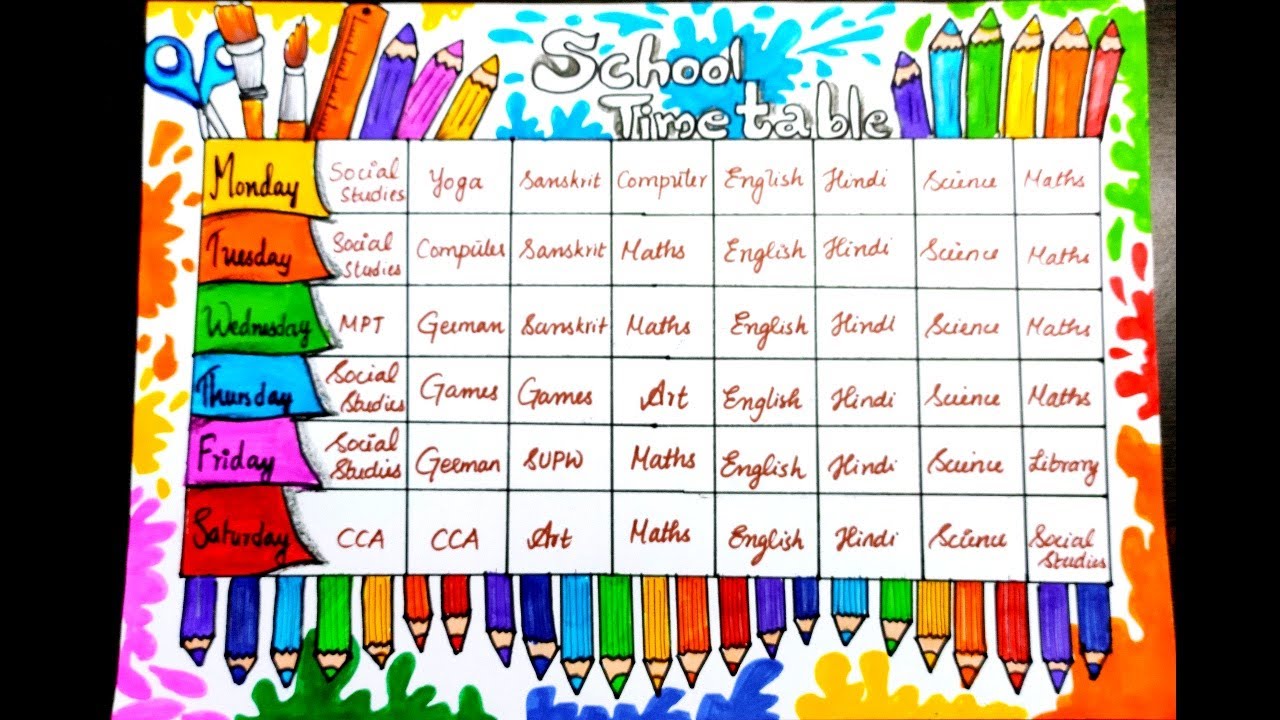 School
Timetable
Monday Social Studies Yoga Sanskrit Computer English Hindi Science Maths
Tuesday Social Studies Computer Sanskrit Maths English Hindi Science Maths
Wednesday MPT German Sanskrit Maths English Hindi Science Maths
Thursday Social Studies Games Games Art English Hindi Science Maths
Friday Social Studies German SUPW Maths English Hindi Science Library
Saturday CCA CCA Art Maths English Hindi Science Social Studies